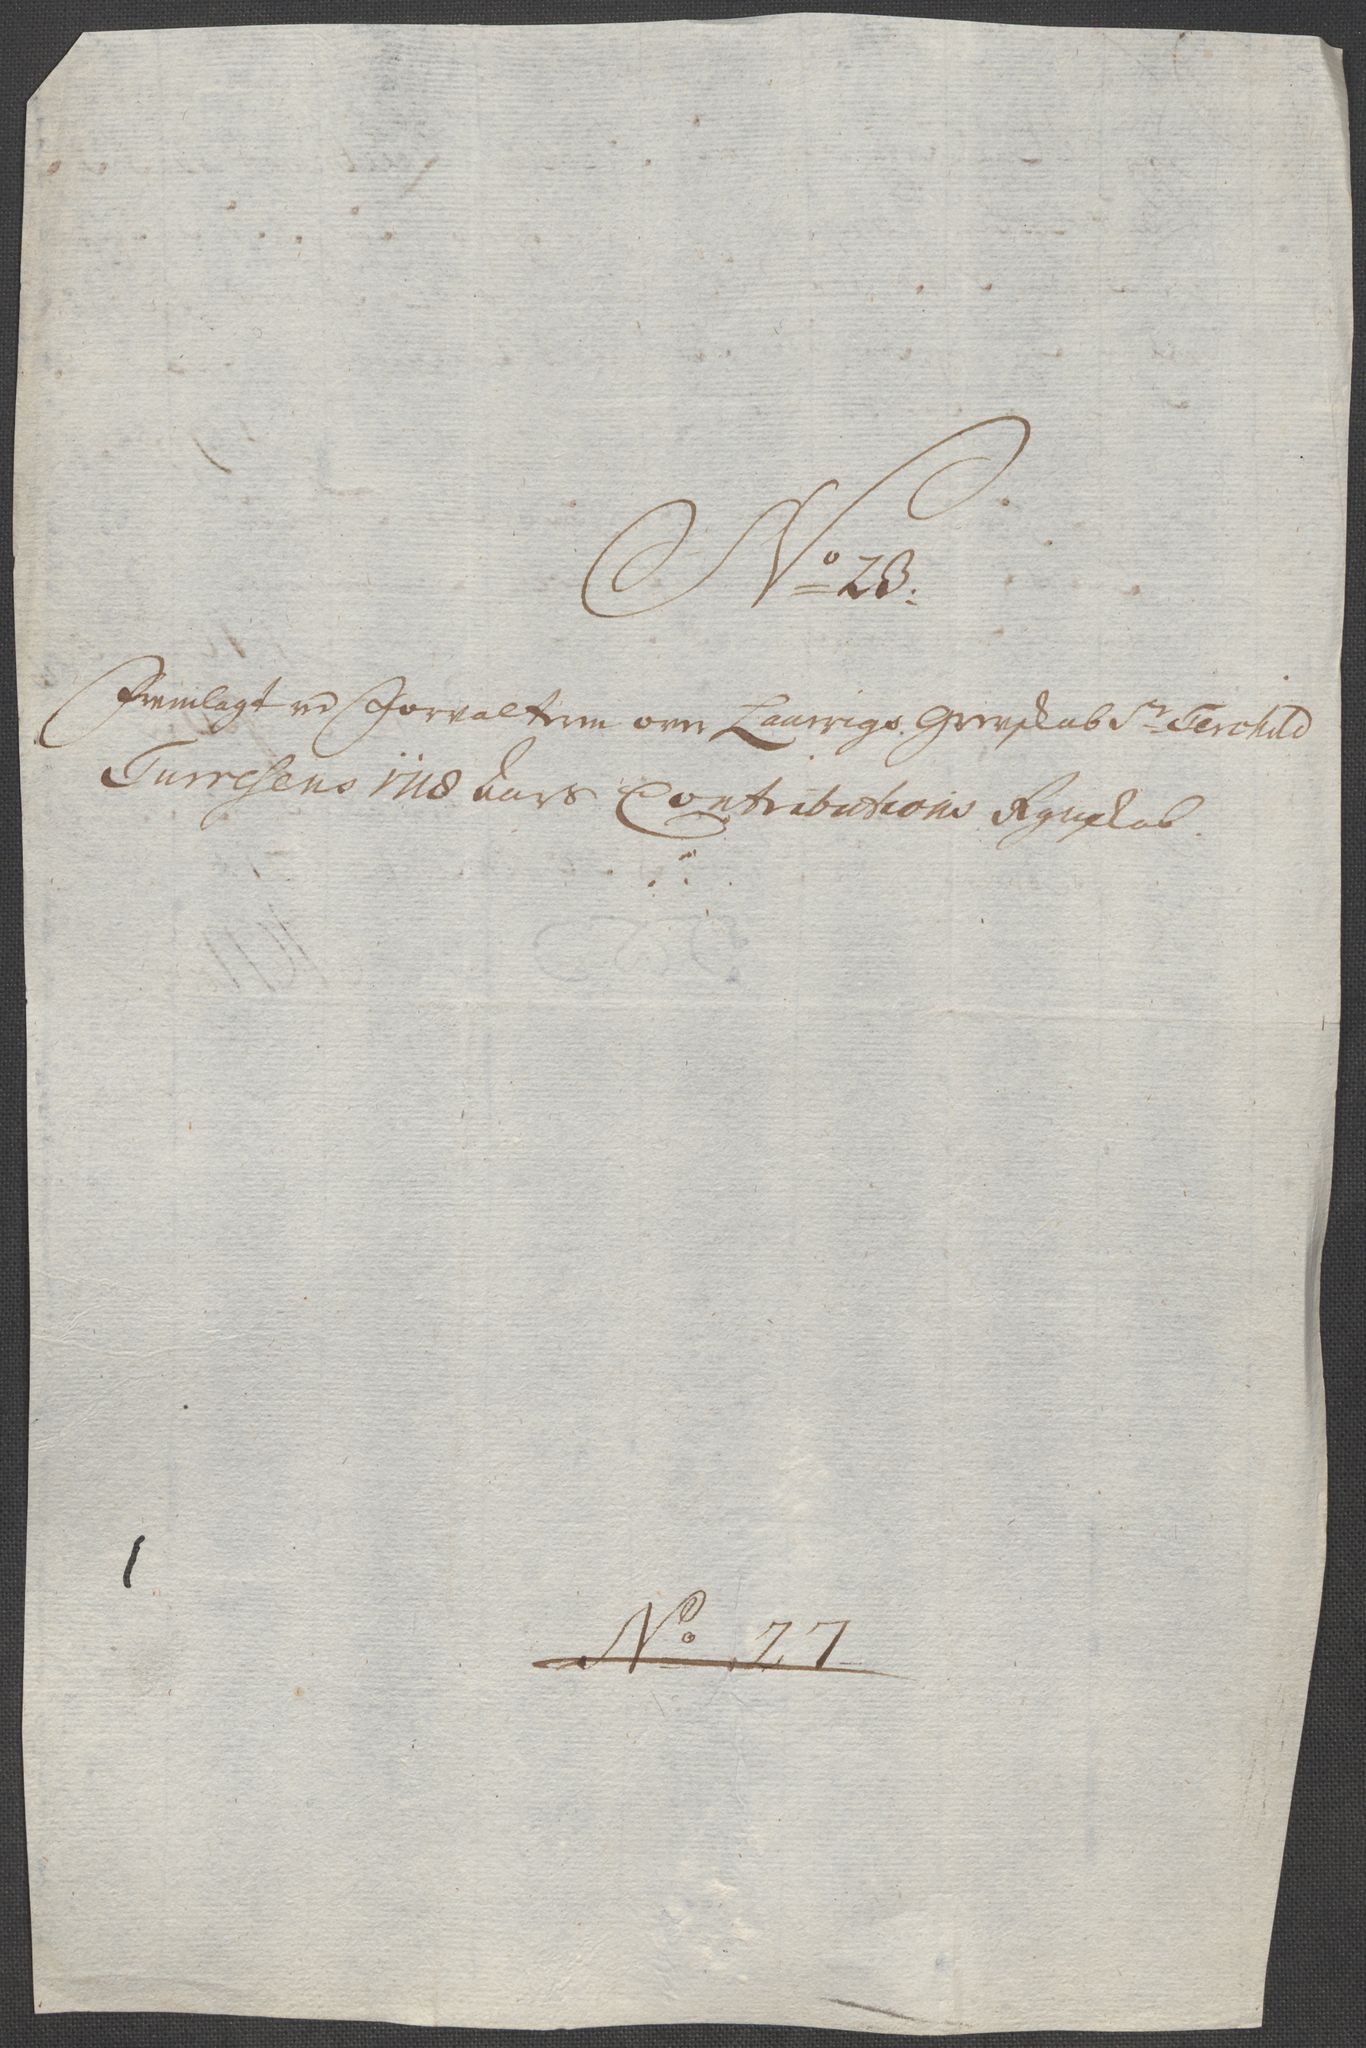 No 28.
Fremlagt ved Forvalteren over Laurvigs Grevskab Sr Terchild
Turresens 1718 Aars Contributions Regnskab.
1
No 27